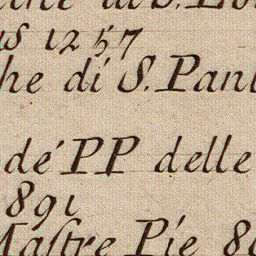 1257
he di S. Pant
dé PP delle
891
Maſtre Pie 8